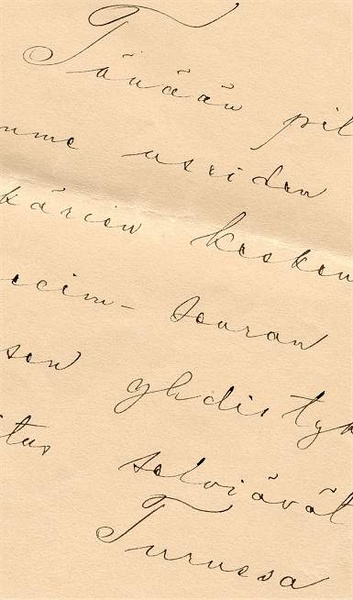 Tänään pil
mme useiden
kärien kesken
ecim- seuran
sen yhdistyk
itus selviävät
Turussa